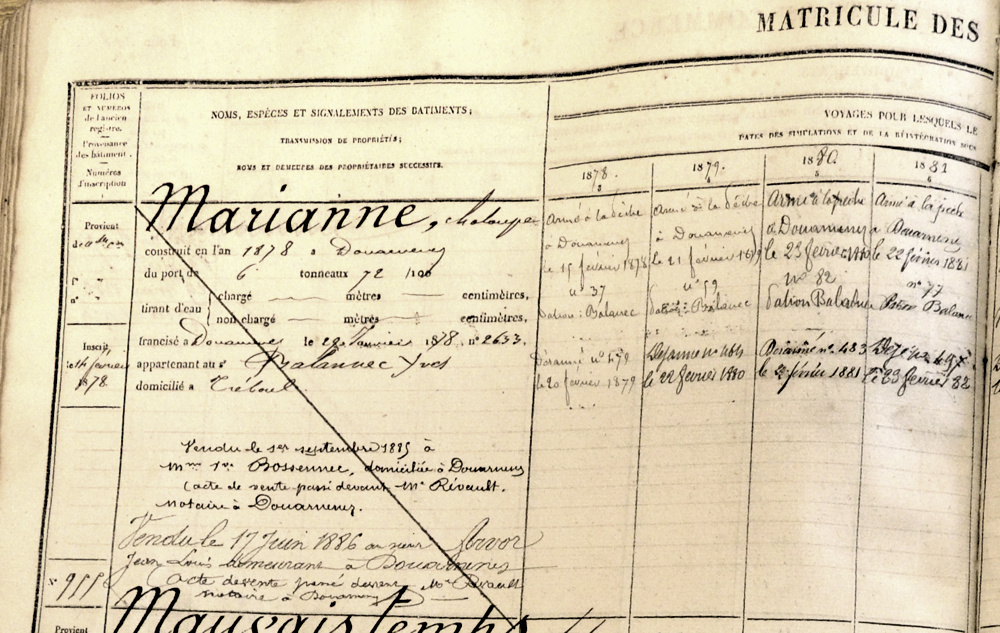 MATRICULE DES
FOLIOS
ET NUMÉROS
de l'ancien
registre.
Provenance
des bâtiment.
Numéros
d'inscription
NOMS, ESPÈCES ET SIGNALEMENTS DES BATIMENTS;
TRANSMISSION DE PROPRIÉTÉS;
NOMS ET DEMEURES DES PROPRIÉTAIRES SUCCESSIFS.
VOYAGES POUR LESQUELS LE
DATES DES SIMULATIONS ET DE LA RÉINTÉGRATION SOUS
1878.
3
1879.
4
1880.
5
1881
6
Provient
Marianne, chaloupe
construit en l'an 1878 à Douarnenez
du port de 6 tonneaux 72 /100
tirant d'eau
chargé mètres centimètres,
non chargé mètres centimètres,
francisé à Douarnenez le 28 Janvier 1878, n° 2633.
appartenant au Sr Balannec Yves
domicilié à Tréboul
Inscrit
le 14 février
1878.
Armé à la pêche
à Douarnenez
le 15 février 1878
n° 37
Patron: Balanec
Désarmé n° 479
le 20 février 1879
Armé à la pêche
à Douarnenez
le 21 février 1879
n° 59
Balanec
Désarmé n° 464
le 22 février 1880
Armé à la pêche
à Douarnenez
le 23 février 1880
n° 82
Patron Balanec
Désarmé n° 483
le 2 février 1881
Armé à la pêche
à Douarnenez
le 22 février 1881
n° 77
Patron Balanec
497
le 23 février 82
Vendu le 1er septembre 1885 à
Mme Vve Bossennec, domiciliée à Douarnenez
(acte de vente passé devant Me Révault.
notaire à Douarnenez.
Vendu le 17 Juin 1886 au sieur Arvor
Jean Louis demeurant à Douarnenez
(acte de vente passé devant Me Révault
notaire à Douarnenez)
N° 955
Mauvais temps
Provient